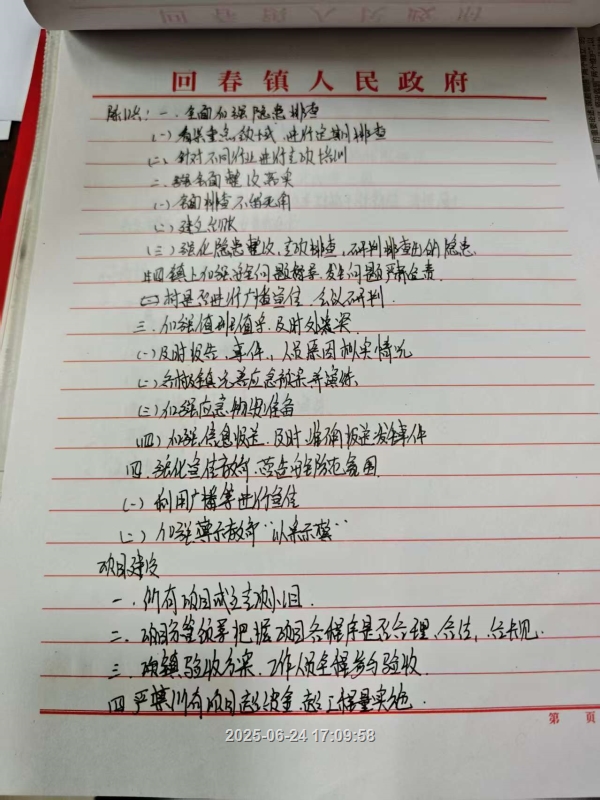 回春镇人民政府
一、全面加强隐患排查
(一)重点领域，进行定期排查
(二)针对不同行业进行专项培训
二、强全面整改落实
(一)全面排查不留死角
(二)建立台账
(三)强化隐患整改，专项排查，研判排查出的隐患
四镇上加强安全问题督导，发生问题严肃追责
村县进行广播宣传，会议研判
三、加强值班值守，及时处突
(一)及时报告，事件，人员原因和实情况
(二)各村镇完善应急预案并演练
(三)加强应急物资准备
(四)加强信息报送，及时，准确报送发生事件
四、强化宣传教育，营造安全防范氛围
(一)利用广播等进行宣传
(二)加强警示教育"以案示警"
项目建设
一、所有项目成立专项小组
二、项目方案领导把握项目合程序是否合理、合法、
三、镇验收方案，工作人员全程参与验收
四严禁所有项目超资金超工程量实施
第 页
2025-06-24 17:09:58